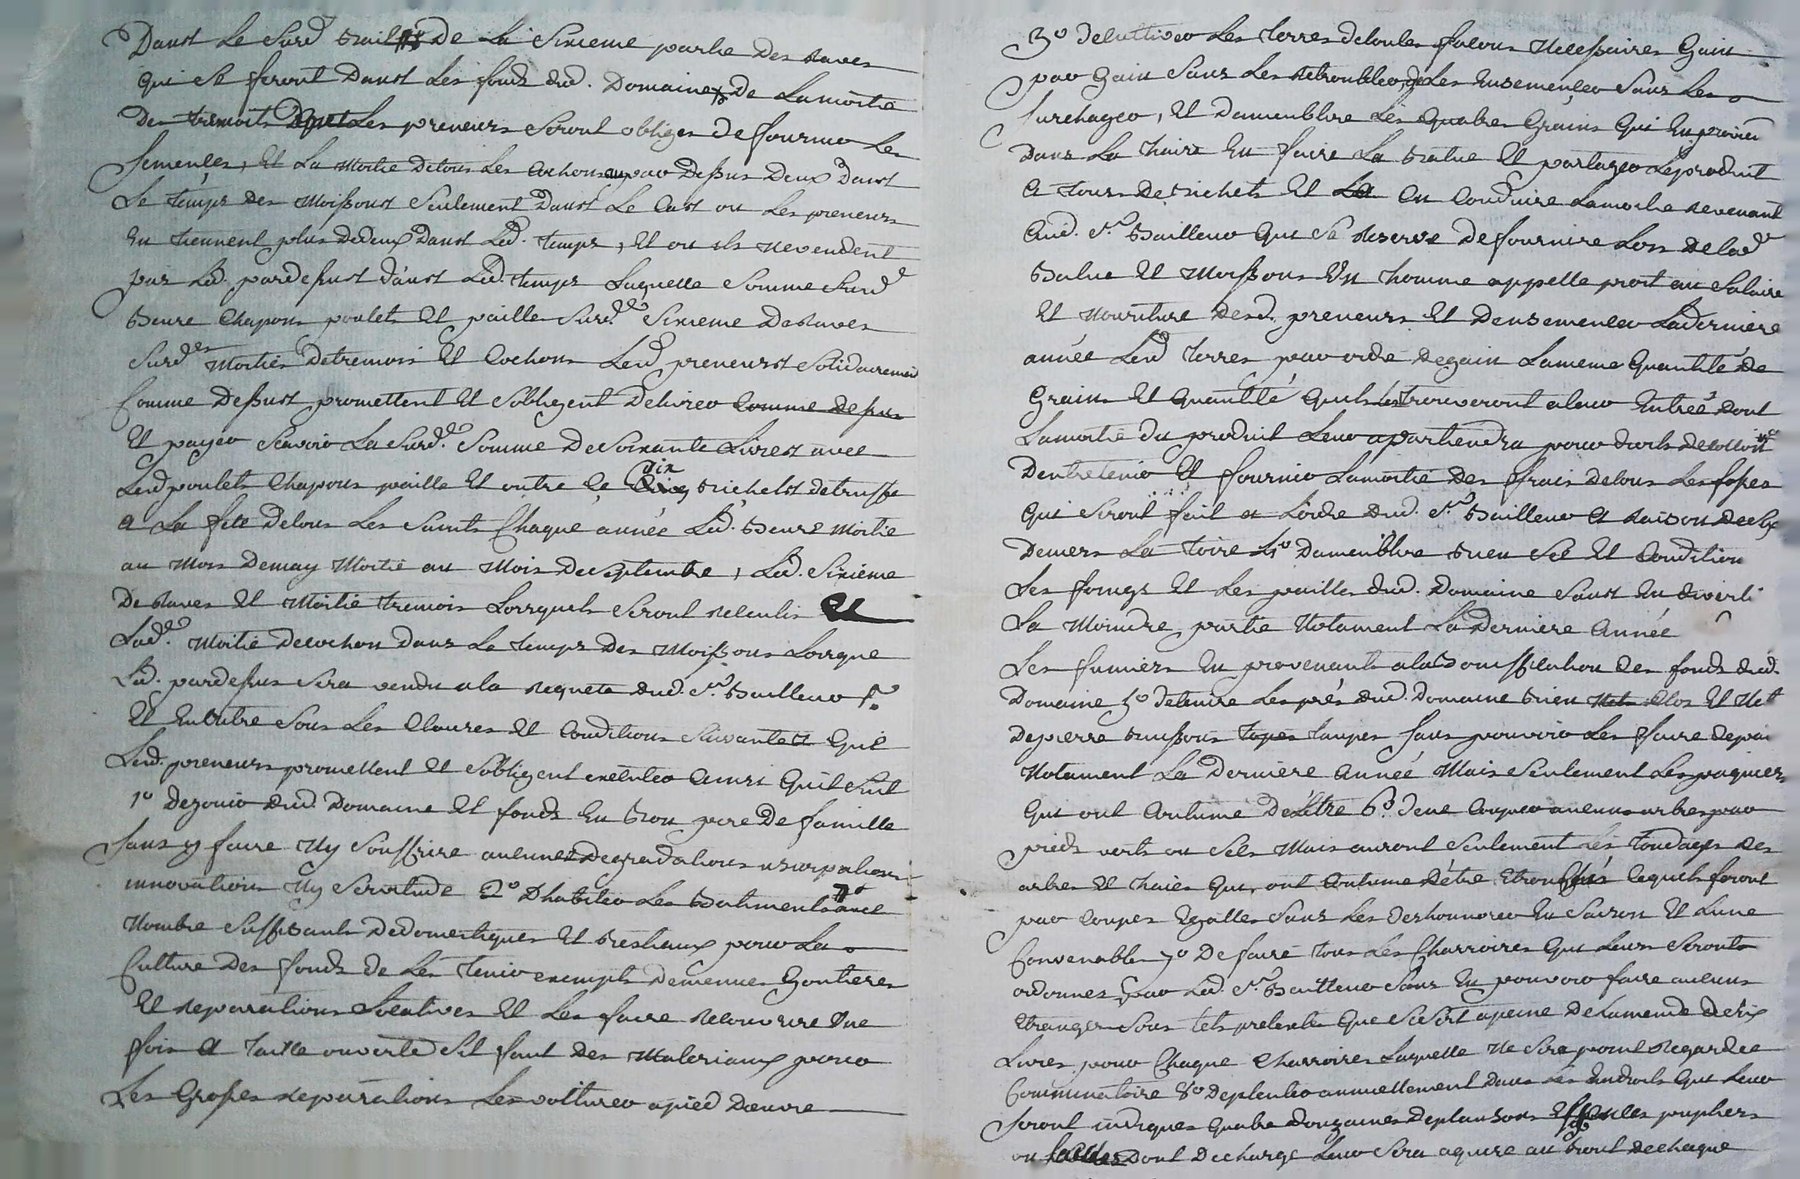 Danst Le Surd. bail de La Sixieme partie des Raves
qui se feront Danst Les fonds dud. Domaine de Lamoitié
Des tremois Les preneurs Seront obliges de fournir Les
Semences, Et La Moitié Detous Les Cochons par Dessus Deux Danst
Le temps des Moissons Seulement Danst Le Cast ou Les preneurs
En tiennent plus Dedeux Danst Led. temps, Et ou ils nevendent
pas Led. pardessust danst Led. temps Laquelle Somme Surd.e
Beure Chapons poulets Et paille Surd. Sixieme DeRaves
Surd.es Moitiés Detremois Et Cochons Lesd. preneurst Solidairement
Comme Dessust promettent Et Sobligent Delivrer Comme dessus
Et payer Scavoir La Surd. Somme De Soixante Livrest avec
Lesd poulets Chapons paille Et outre ce Six bichetst detruffe
a La fete Detous Les Saints Chaque année Led. Beure Moitié
au Mois Demay Moitié au Mois De Septembre, Led. Sixieme
De Raves Et Moitié tremois Lorsquels Seront Receulis Et
Lad. Moitié Decochon Dans Le temps Des Moissons Lorsque
Led. pardessus Sera vendu ala Requete dud. Sr. Bailleur
Et Enoutre Sous Les Clauses Et Conditions Suivantes Que
Lesd. preneurs promettent Et Sobligent executer Ainsi Quil Suit
1o Dejouir dud. Domaine Et fonds En Bon pere De famille
Sans y faire Ny Souffrire aucunes Degradations usurpations
innovations Ny Servitude 2o Dhabiter Les Batiments avec
Nombre Suffisants Dedomestiques Et Bestiaux pour La
Culture Des fonds de Les tenir exempts Demenues Goutieres
Et Reparations Locatives Et Les faire Recouvrire Une
fois a taille ouverte Sil faut des Materiaux pour
Les Grosses Reparations Les voiturer apied Doeuvre
3o Decultiver Les terres detoutes facons Necessaires Gain
par Gain Sans Les Retroubler, de Les Ensemencer Sans Les
Surchager, Et Dameublire Les Quatres Grains Qui En proviendront
Dans La haire En faire La Batue Et partager Leproduit
a tours De Bichets Et En Conduire Lamoitie Revenant
Aud. Sr. Bailleur Qui Se Reserve Defournire Lors Delad.
Batue Et Moissons Un homme appellé prost au Salaire
Et Nouriture Desd. preneurs Et Densemencer Laderniere
année Lesd terres par ordre Degain Lameme Quantité De
Grains Et Quantité Quils trouveront aleur Entrée dont
Lamoitié du produit Leur apartiendra pour droits Decollon
Dentretenir Et fournir Lamoitié Des frais Detous Les fosses
Qui Seront fait a Lordre dud. Sr. Bailleur a Raison De Six
Deniers La toise 4o Dameublire bien Sec Et Condition
Les foings Et Les pailles dud. Domaine Sanst En divertir
La Moindre partie Notament La Derniere Année
Les fumiers En provenants ala Bonnification Des fonds dud.
Domaine 5o Detenire Les prés dud. Domaine bien Clos Et Net
Depierre buissons taupes Sans pouvoir Les faire depai
Notament La Derniere Année Mais Seulement Les paquiers
Qui ont Coutume De Lêtre 6o De ne Couper aucuns arbres par
pieds verts ou Secs Mais auront Seulement Les tondages des
arbres Et haies Qui, ont Coutume Dêtre Etronchés Lequels feront
par Coupes Egalles Sans Les Deshonnorer En Saison Et Lune
Convenable 7o De faire tous Les Charroires Qui Leurs Seront
ordonnes par Led. Sr. Bailleur Sans En pouvoir faire aucuns
Etrangers Sous tels pretexte Que Ce Soit apeine De Lamende De Six
Livres pour Chaque Charroires Laquelle Ne Sera point Regardée
Comminatoire 8o Deplenter annuellement Dans Les Endroits Qui Leur
Seront indiques Quatre Douzaines Deplansons peupliers
ou Saules Dont Decharge Leur Sera aquise au bout dechaque